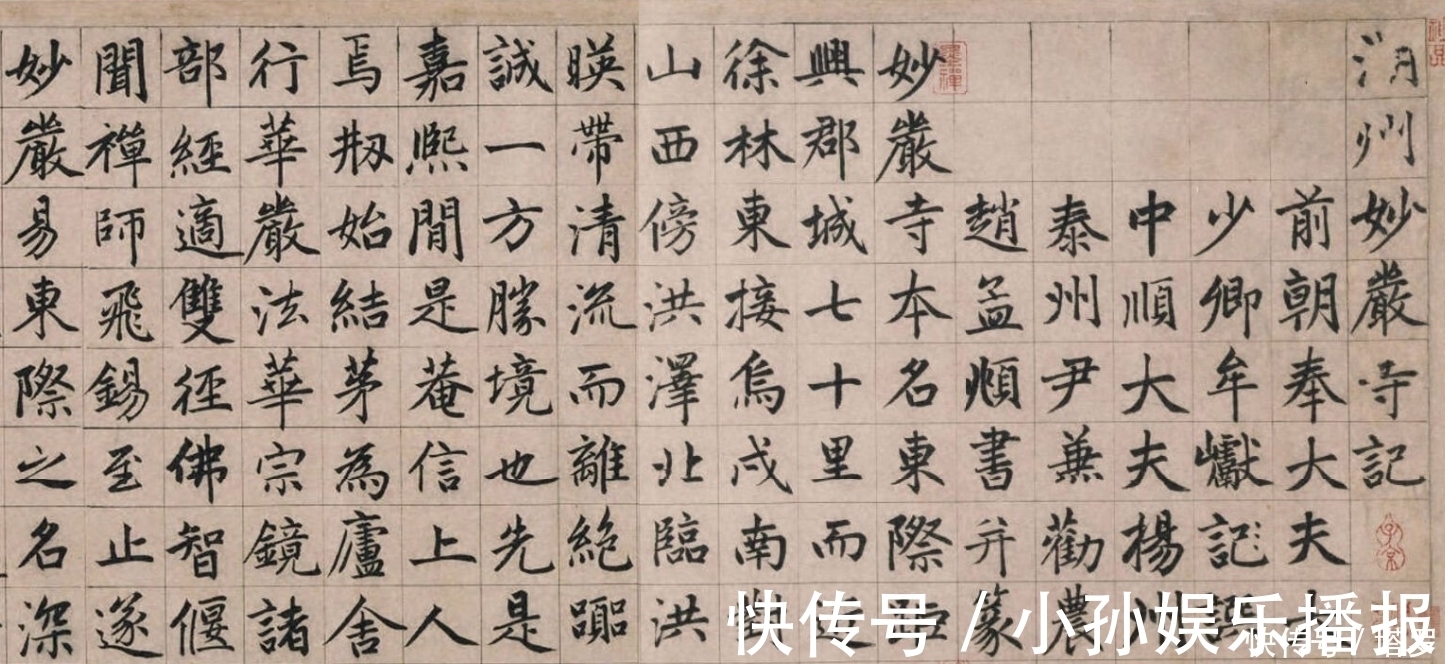 湖州妙嚴寺記
前朝奉大夫大
少卿牟巘記
中順大夫楊州
泰州尹兼勸農
趙孟頫書并篆
妙嚴寺本名東際距
興郡城七十里而近
徐林東接烏戍南對
山西傍洪澤北臨洪
暎帶清流而離絕
誠一方勝境也先是
嘉熙間是菴信上人
焉刱始結茅為廬舍
行華嚴法華宗鏡諸
部經適雙徑佛智偃
聞禪師飛錫至止遂
妙嚴易東際之名深
子京
快传号 / 小孙娱乐播报